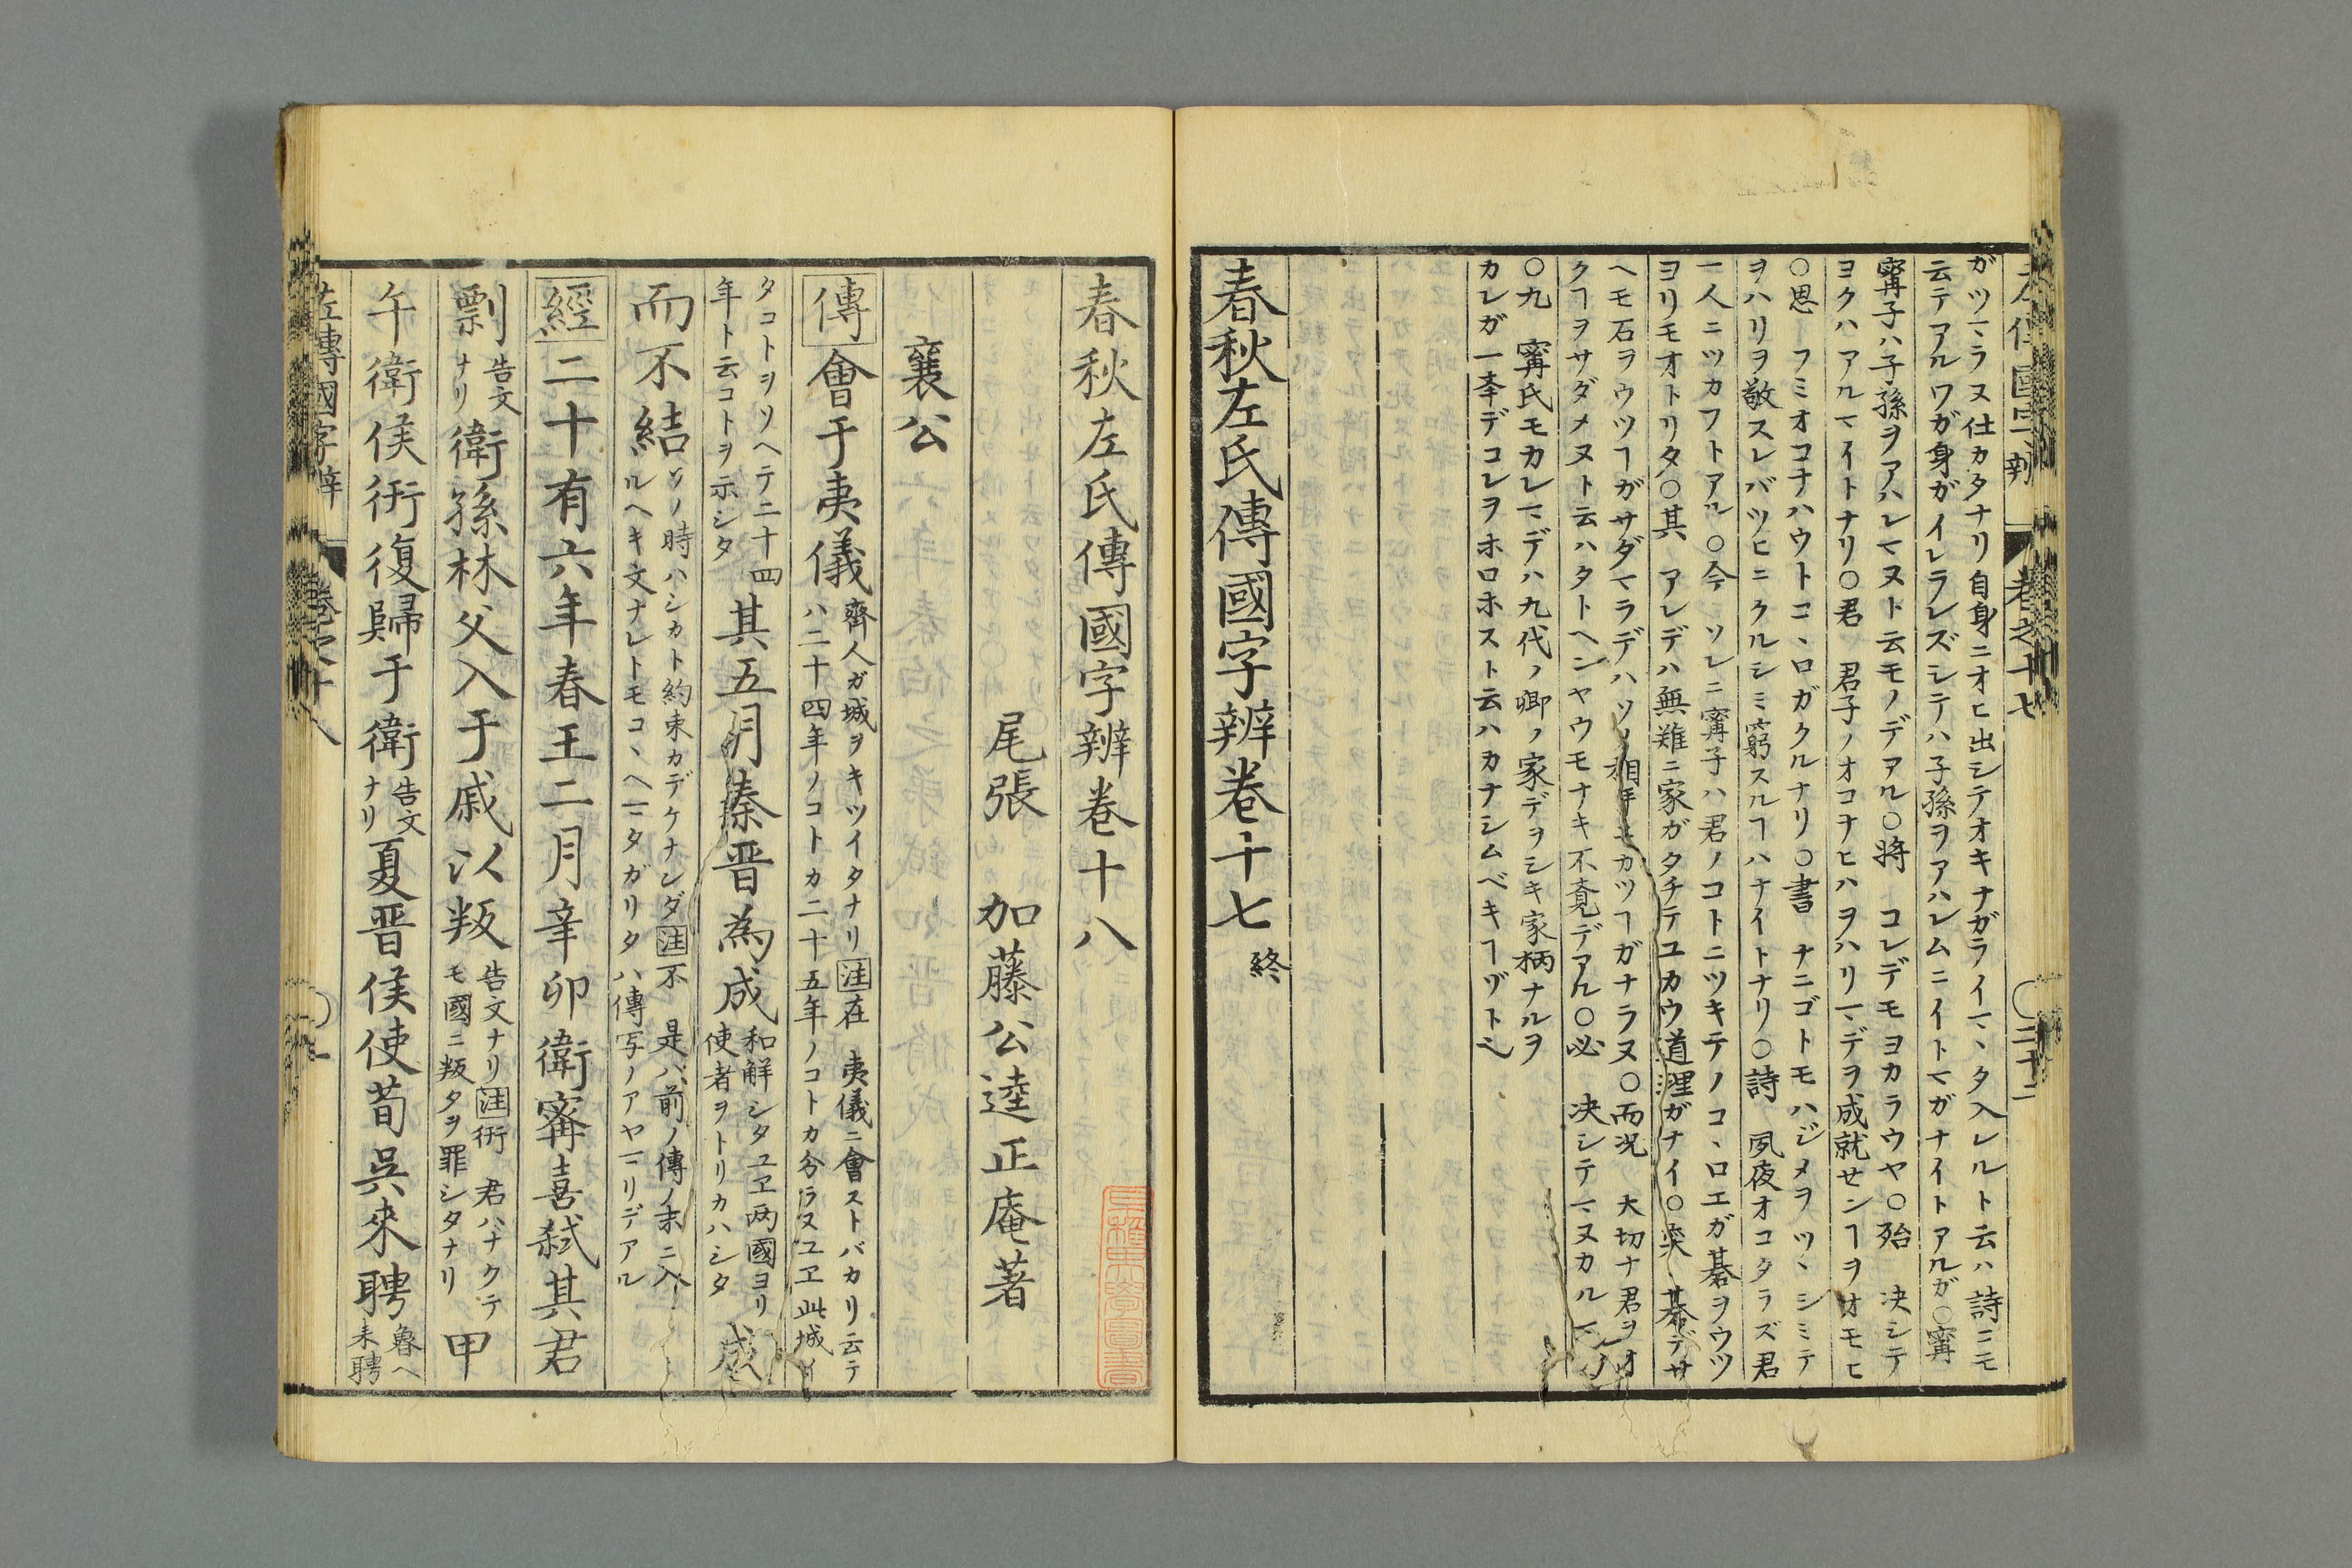 ガツマラヌ仕カタナリ自身ニオヒ出シテオキナガライマヽタ入レルト云ハ詩ニモ
云テアルワガ身ガイレラレズシテハ子孫ヲアハレムニイトマガナイトアルガ○寗
寗子ハ子孫ヲアハレマヌト云モノデアル○将 コレデモヨカラウヤ○殆 决シテ
ヨクハアルマイトナリ○君 君子ノオコナヒハヲハリマデヲ成就センヿヲオモヒ
○思 フミオコナハウトコヽロガクルナリ○書 ナニゴトモハジメヲツヽシミテ
ヲハリヲ敬スレバツヒニクルシミ窮スルヿハナイトナリ○詩 夙夜オコタラズ君
一人ニツカフトアル○今 ソレニ寗子ハ君ノコトニツキテノコヽロエガ碁ヲウツ
ヨリモオトリタ○其 アレデハ無難ニ家ガタチテユカウ道理ガナイ○奕 碁デサ
ヘモ石ヲウツヿガサダマラデハソノ相手ニカツヿガナラヌ○而况 大切ナ君ヲオ
クヿヲサダメヌト云ハタトヘンヤウモナキ不覚デアル○必 决シテマヌカルマイ
○九 寗氏モカレマデハ九代ノ卿ノ家デヲシキ家柄ナルヲ
カレガ一本デコレヲホロホスト云ハカナシムベキヿヅト也
春秋左氏傳國字辨巻十七 終
左傳國字辨 巻之十七 ○三十二
春秋左氏傳國字辨巻十八
尾張 加藤公逵正庵著
襄公
傳 會于夷儀 齊人ガ城ヲキツイタナリ 注 在 夷儀ニ會ストバカリ云テ
ハ二十四年ノコトカ二十五年ノコトカ分ラヌユヱ此城イ
タコトヲソヘテ二十四
年ト云コトヲ示シタ 其五月秦晋為成 和解シタユヱ両國ヨリ
使者ヲトリカハシタ 成
而不結 ソノ時ハシカト約束カデケナンダ 注 不 是ハ前ノ傳ノ末ニ入
ルヘキ文ナレトモコヽヘマタガリタハ傳写ノアヤマリデアル
經 二十有六年春王二月辛卯衛寗喜弑其君
剽 告文
ナリ 衛孫林父入于戚以叛 告文ナリ 注 衎 君ハナクテ
モ國ニ叛タヲ罪シタナリ 甲
午衛侯衎復歸于衛 告文
ナリ 夏晋侯使荀呉來聘 魯ヘ
来聘
左傳國字辨 巻之十八 ○一